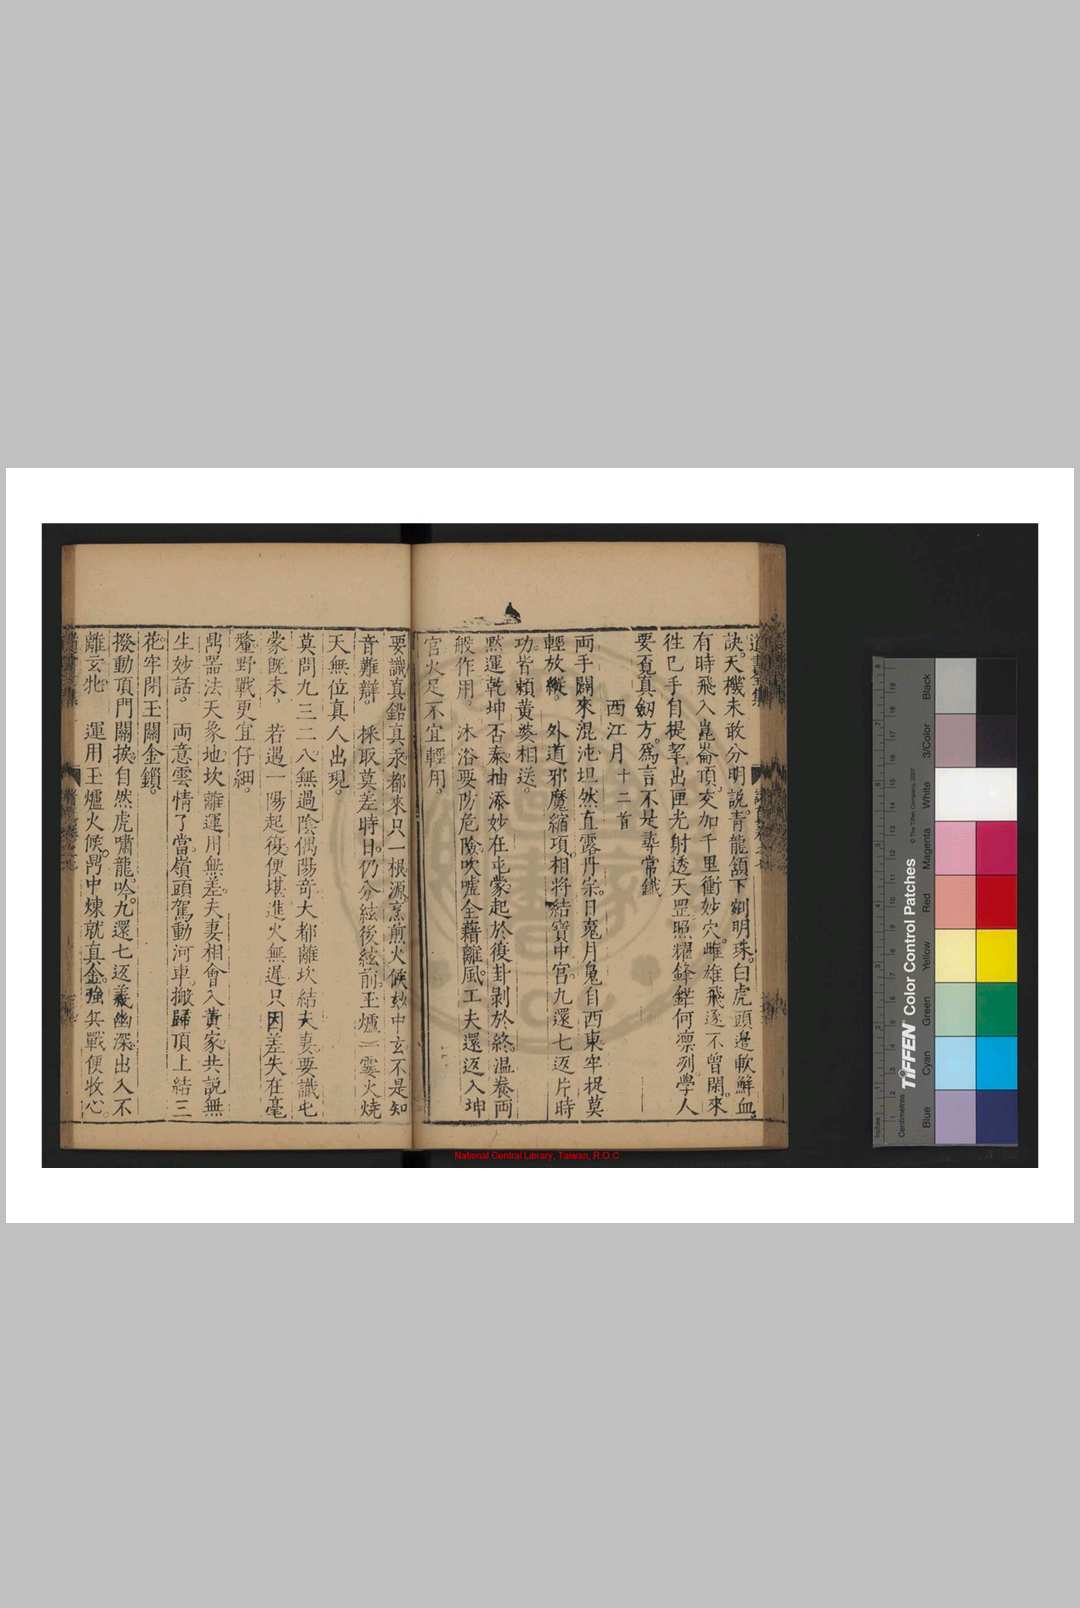 訣。天機未敢分明說。青龍頷下剜明珠。白虎頭邊軟鮮血。
有時飛入崑崙頂。交加千里衝妙穴。雌雄飛逐不曾閑。來
往已手自提挈。出匣光射透天罡。照耀鋒鋩何凛冽。學人
要覓真劔方。爲言不是尋常鐵
西江月十二首
両手闢來混沌。坦然直露丹宗。日䰟月䰟自西東。牢捉莫
輕放縱。 外道邪魔縮項。相將結寶中宮。九還七返片時
功。皆賴黄婆相送。
黙運乾坤否泰。抽添妙在屯蒙。起於復卦剥於終。温養両
般作用。 沐浴要防危險。吹噓全藉離風。工夫還返入坤
宮。火足不宜輕用。
要識真鉛真汞。都來只一根源。烹煎火候妙中玄。不是知
音難辯。 採取莫差時日。仍分絃後絃前。玉爐一霎火燒
天。無位真人出現。
莫問九三二八。無過陰偶陽竒。大都離坎結夫妻。要識屯
蒙既未。 若遇一陽起復。便堪進火無遲。只因差失在毫
釐。野戰更宜仔細。
鼎噐法天象地。坎離運用無差。夫妻相會入黄家。共説無
生妙話。 両意雲情了當。嶺頭駕動河車。搬歸頂上結三
花。牢閉玉關金鎖。
撥動頂門關捩。自然虎嘯龍吟。九還七返義幽深。出入不
離玄牝。 運用玉爐火候。鼎中煉就真金。強兵戰便牧心。
Blue
Cyan
Green
Yellow
Red
Magenta
White
3/Color
Black
TIFFEN Color Control Patches
© The Tiffen Company, 2007
Centimetres
Inches
National Central Library, Taiwan, R.O.C